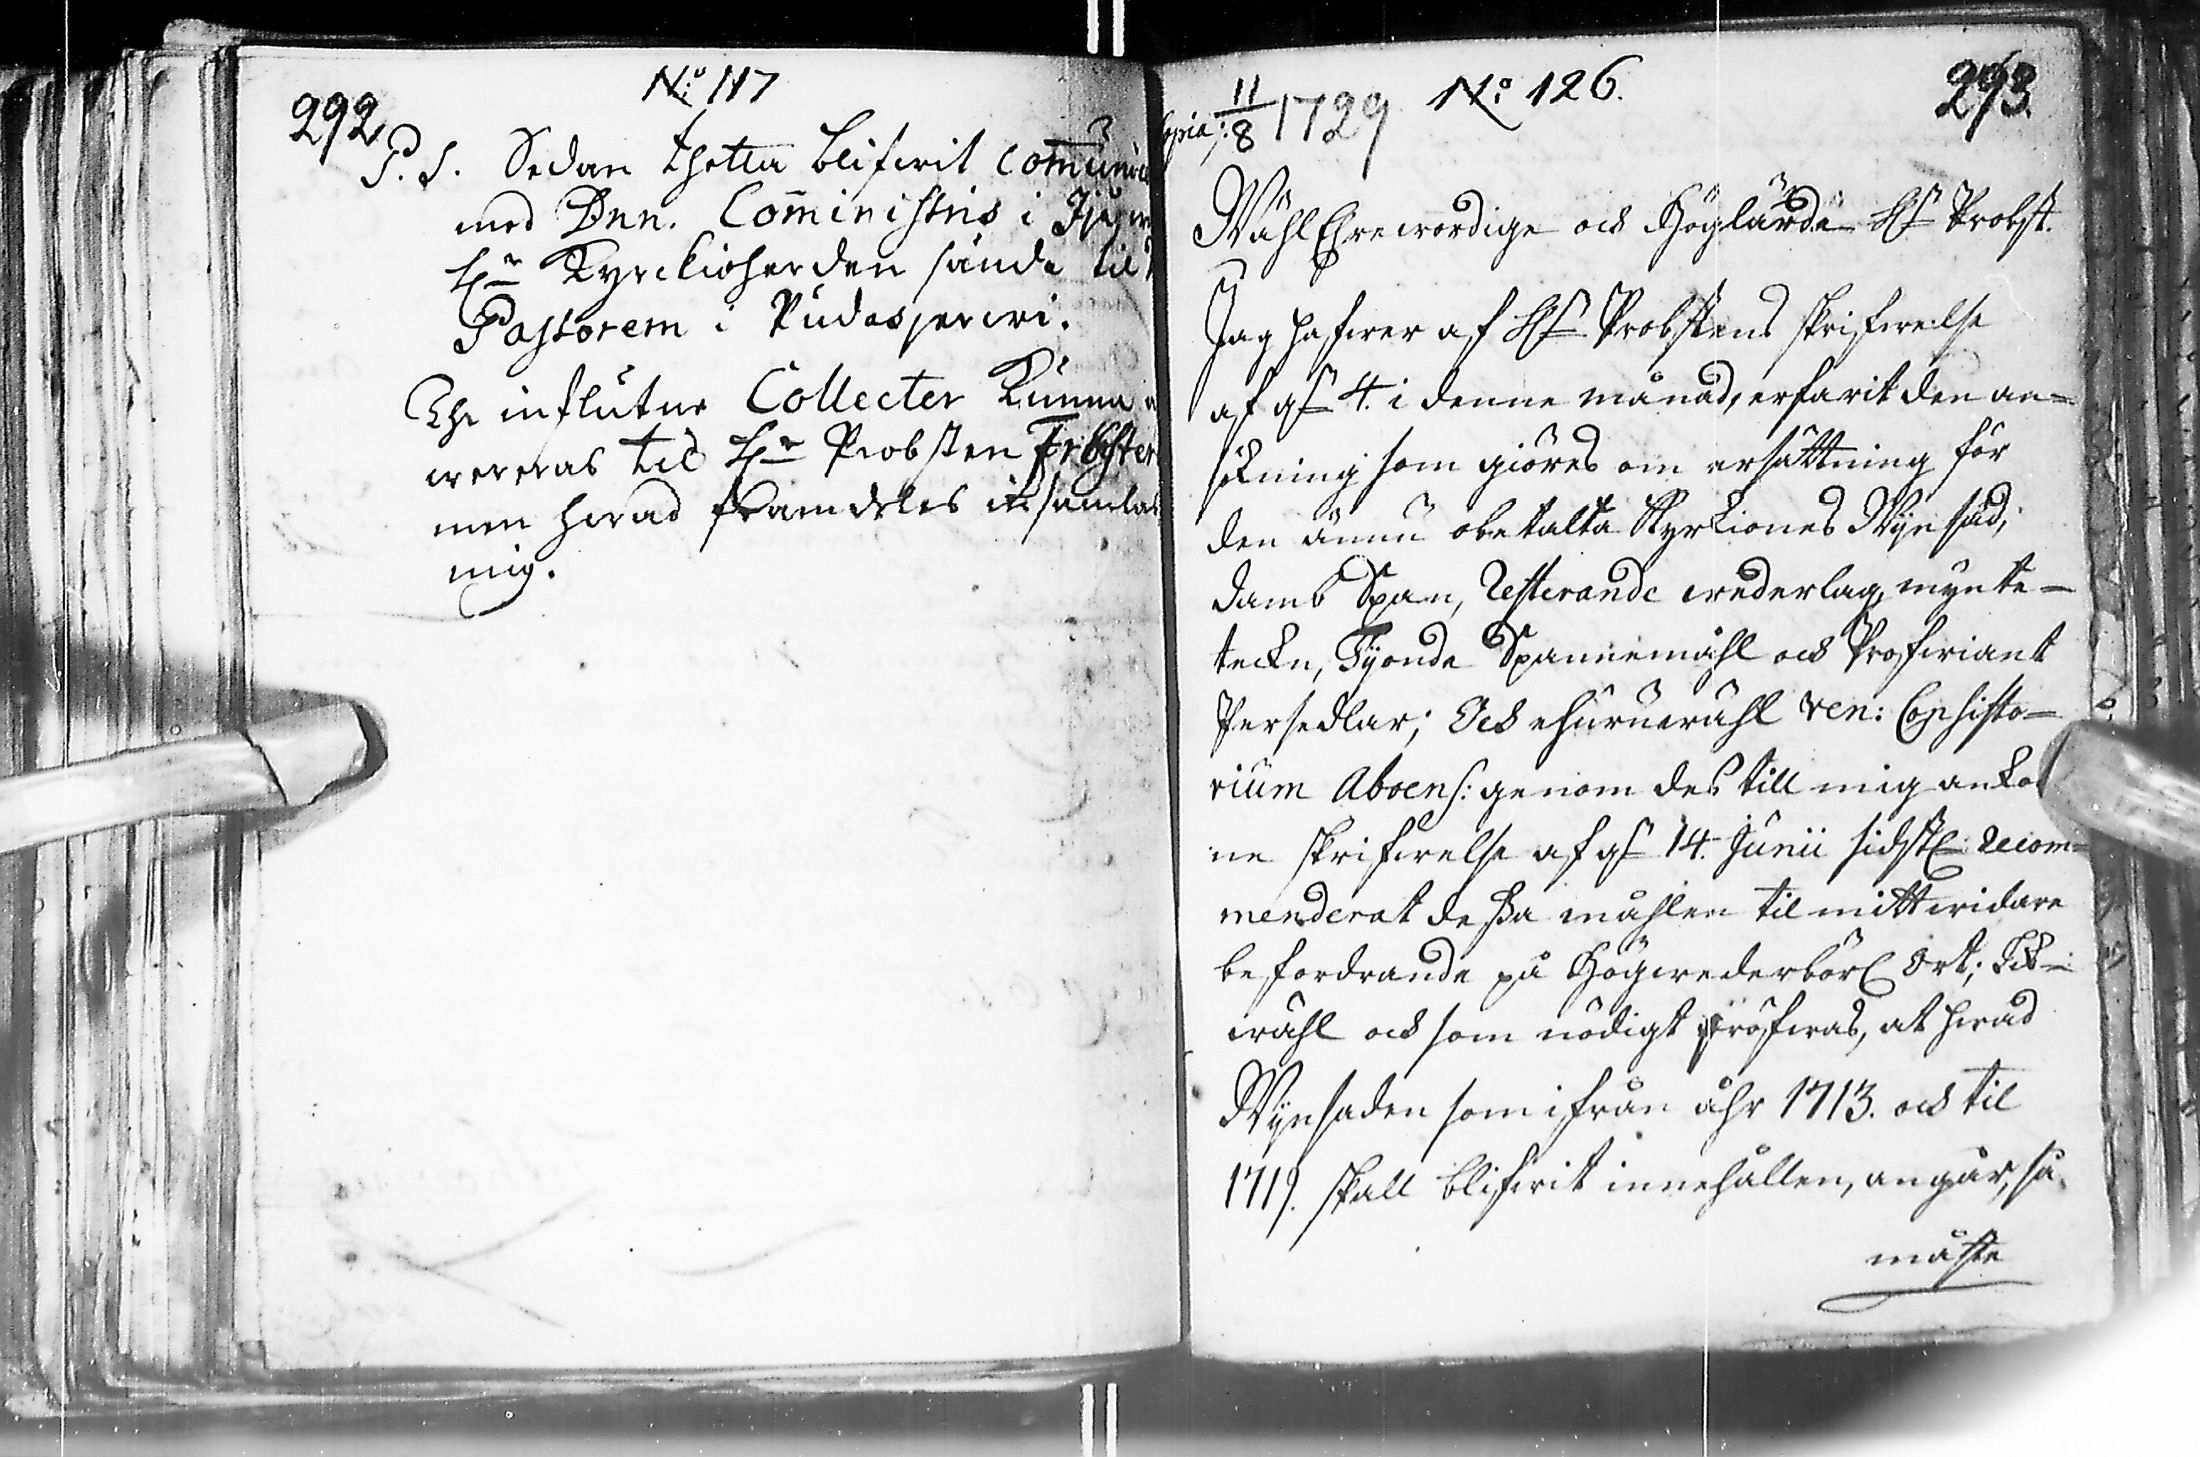 292
No 117
P.S. Sedan thetta blifwit com̄unic
med Dnn. Com̄inistris i Ijo
Hr Kyrckioherden sände til
Pastorem i Pudasjerwi.
The influtne Collecter kunna
wereras til Hr Probsten Forbster
men hwad framdeles samlas
mig.
293.
No 126.
Copia; 11/8 1729
WählEhrewördige och Höglärde Hr Probst.
Jag hafwer af Hr Probstens skrifwelse
af d 4. i denne månad, erfarit den an=
sökning som giöres om ersättning för
den ännu obetalta Kyrkiones Wijnsäd,
Tamb Span, Resterande wederlag, mynte-
teckn, Tijonde Spannemåhl och Profwiant
Persedlar; Och ehuruwähl Ven: Consisto-
rium Aboens: genom des till mig anko
ne skrifwelse af d 14. Junii sidstl: Recom=
menderat dessa måhlen til mitt widare
befordrande på Högwederbörl Ort; Lik-
wähl och som nödigt pröfwas, at hwad
Wijnsaden som ifrån åhr 1713. och til
1719. skall blifwit innehållen, angår, så
måste